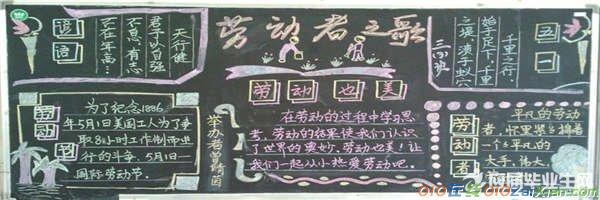 劳动者之歌
谚语
天行健
君子以自强
不息。有志
不在年高…
千里之行,
始于足下,千里
之堤,溃于蚁穴
三(3)班
五一
劳动也美
劳动节
为了纪念1886
年5月1日美国工人为了争
取8小时工作制而进
行的斗争。5月1日—
国际劳动节。
举办者曾婧茵
在劳动的过程中学习思
考,劳动的结果使我们认识
了世界的奥妙,劳动也美!让
我们一起从小热爱劳动吧。
劳动者
平凡的劳动
者,怀里装着揣着
一个个平凡的
大手,伟大。
应届毕业生网